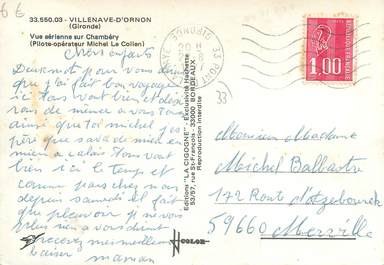 6 €
33.550.03 - VILLENAVE-D'ORNON
(Gironde)
Vue aérienne sur Chambéry
(Pilote-opérateur Michel Le Collen)
Chers enfants
Deux mot pour vous dire
que j'ai fait bon voyage
ici tous vont bien et
de même a vous tous
ainsi que toi michel j'es
père que sava de mieu en
mieu a calais tous vont
bien ici le temps et
comme pour chez nous
depuis samedi il fait
que pleuvoir je ne vois
plus rien a vous dire
recevez mes meilleurs
baiser maman
Editions "LA CIGOGNE" - Exclusivité Hachette
53/57, rue St-François - 33000 BORDEAUX
Reproduction interdite
COLOR
33 PONT
GIRONDE
1,00
33
Monsieur Madame
Michel Ballastre
172 Rout d'Azebrouck
59660 Merville